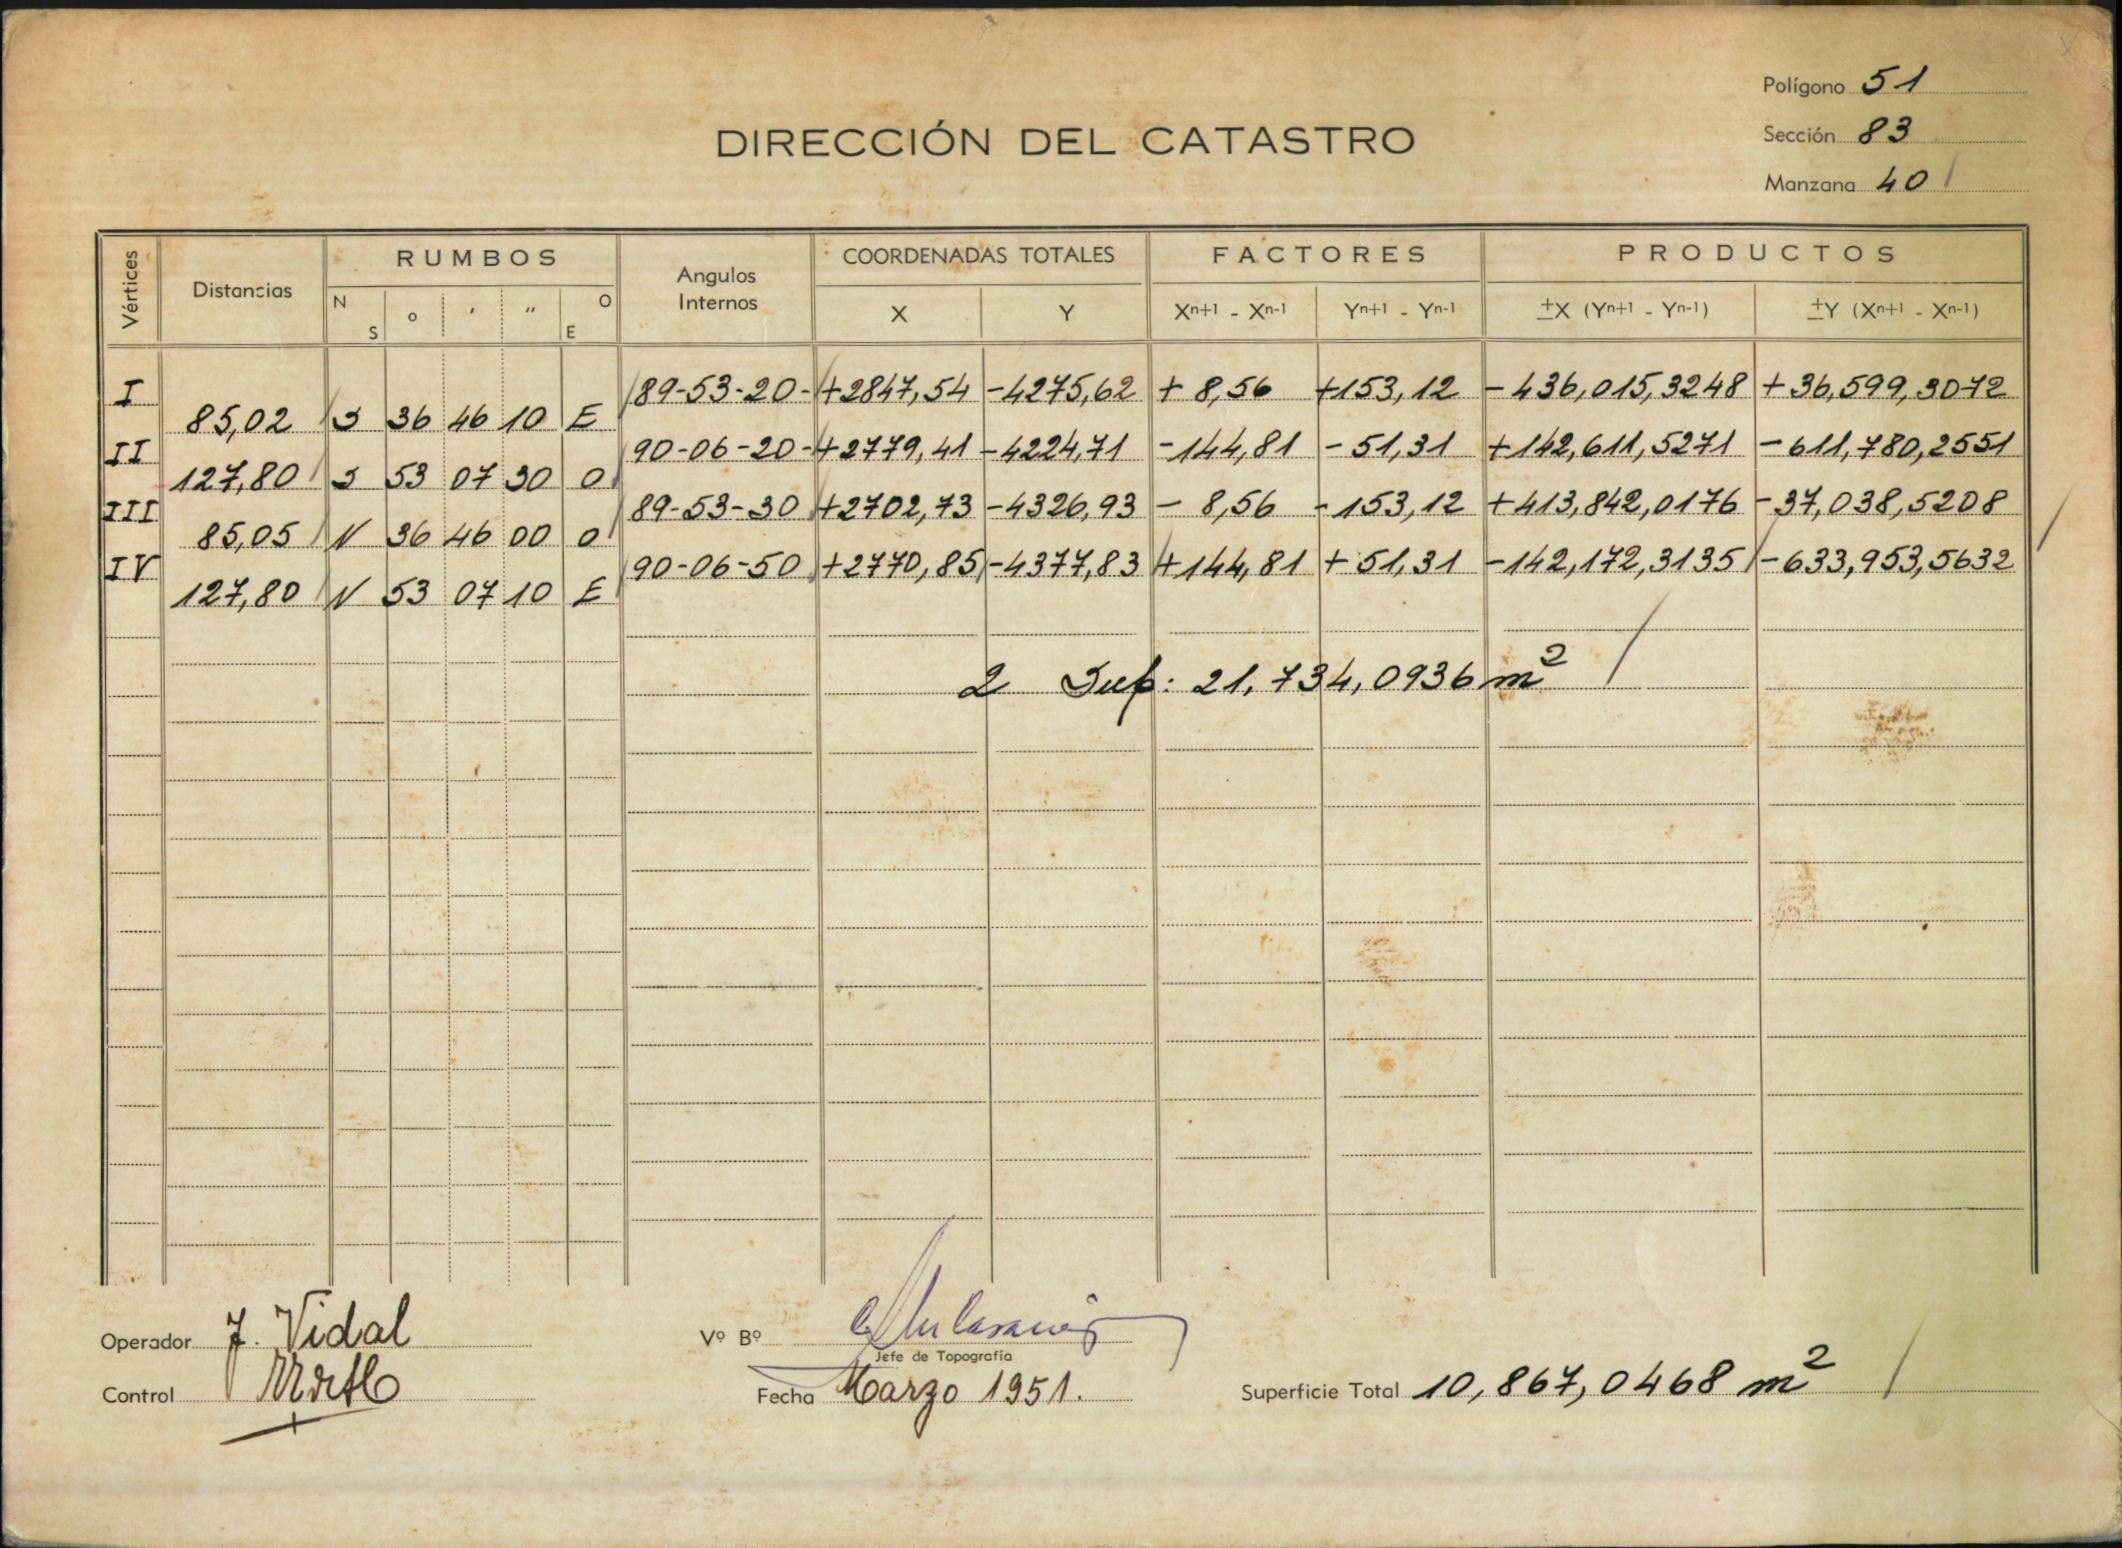 Polígono 51
DIRECCIÓN DEL CATASTRO
Sección 83
Manzana 40
Vértices Distancias RUMBOS Angulos Internos COORDENADAS TOTALES FACTORES PRODUCTOS
N S o ' " O E X Y Xn+1 - Xn-1 Yn+1 - Yn-1 ±X (Yn+1 - Yn-1) ±Y (Xn+1 - Xn-1)
I 89-53-20- +2847,54 -4275,62 + 8,56 +153,12 - 436,015,3248 + 36,599,3072
85,02 S 36 46 10 E
II 90-06-20- +2779,41 -4224,71 -144,81 - 51,31 +142,611,5271 - 611,780,2551
127,80 S 53 07 30 O
III 89-53-30 +2702,73 -4326,93 - 8,56 -153,12 +413,842,0176 -37,038,5208
85,05 N 36 46 00 O
IV 90-06-50 +2770,85 -4377,83 +144,81 + 51,31 -142,172,3135 -633,953,5632
127,80 N 53 07 10 E
2 Sup: 21,734,0936 m²
Operador J. Vidal
Vº Bº
Jefe de Topografía
Control
Fecha Marzo 1951.
Superficie Total 10,867,0468 m²